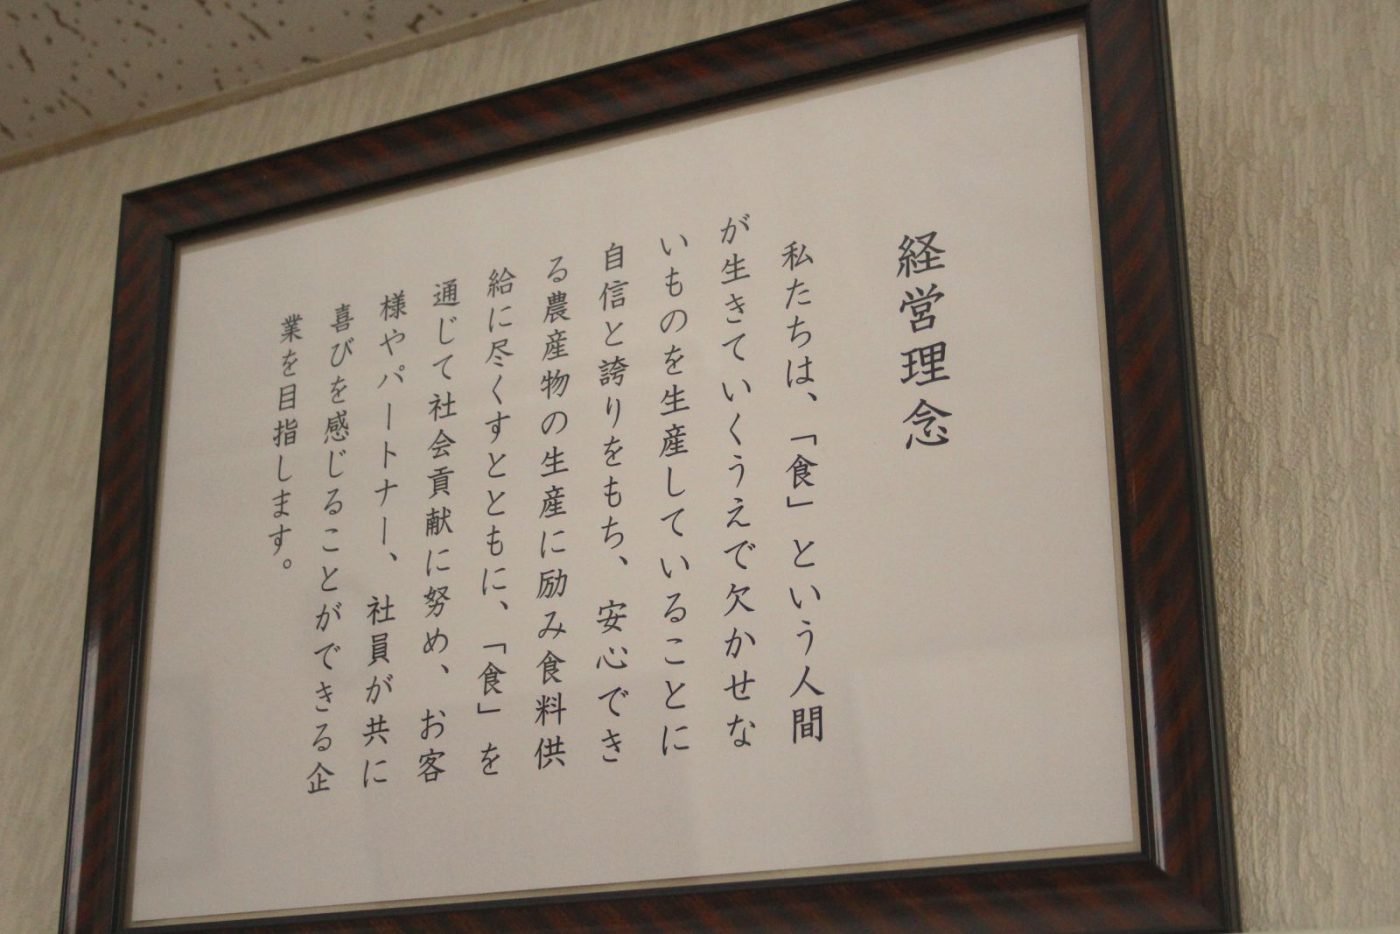 経営理念
私たちは、「食」という人間
が生きていくうえで欠かせな
いものを生産していることに
自信と誇りをもち、安心でき
る農産物の生産に励み食料供
給に尽くすとともに、「食」を
通じて社会貢献に努め、お客
様やパートナー、社員が共に
喜びを感じることができる企
業を目指します。